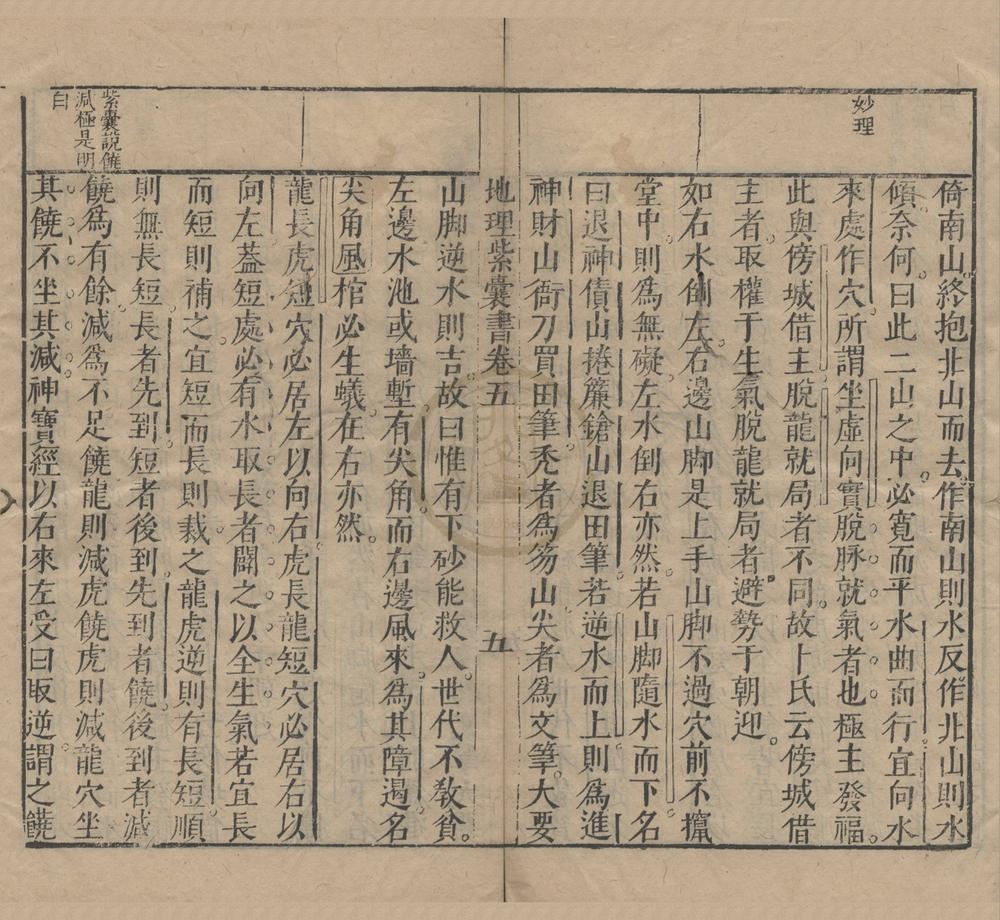 妙理
倚南山終抱北山而去作南山則水反作北山則水
傾奈何曰此二山之中必寬而平水曲而行宜向水
來處作穴所謂坐虛向實脫脉就氣者也極主發福
此與傍城借主脫龍就局者不同故卜氏云傍城借
主者取權于生氣脫龍就局者避勢于朝迎
如右水倒左右邊山脚是上手山脚不過穴前不攛
堂中則為無礙左水倒右亦然若山脚隨水而下名
曰退神債山捲簾鎗山退田筆若逆水而上則為進
神財山衙刀買田筆禿者為笏山尖者為文筆大要
地理紫囊書卷五
五
山脚逆水則吉故曰惟有下砂能救人世代不教貧
左邊水池或墻塹有尖角而右邊風來為其障遏名
尖角風棺必生蟻在右亦然
龍長虎短穴必居左以向右虎長龍短穴必居右以
向左蓋短處必有水取長者闢之以全生氣若宜長
而短則補之宜短而長則裁之龍虎逆則有長短順
則無長短長者先到短者後到先到者饒後到者減
紫囊說饒
減極是明
白
饒為有餘減為不足饒龍則減虎饒虎則減龍穴坐
其饒不坐其減神寶經以右來左受曰取逆謂之饒